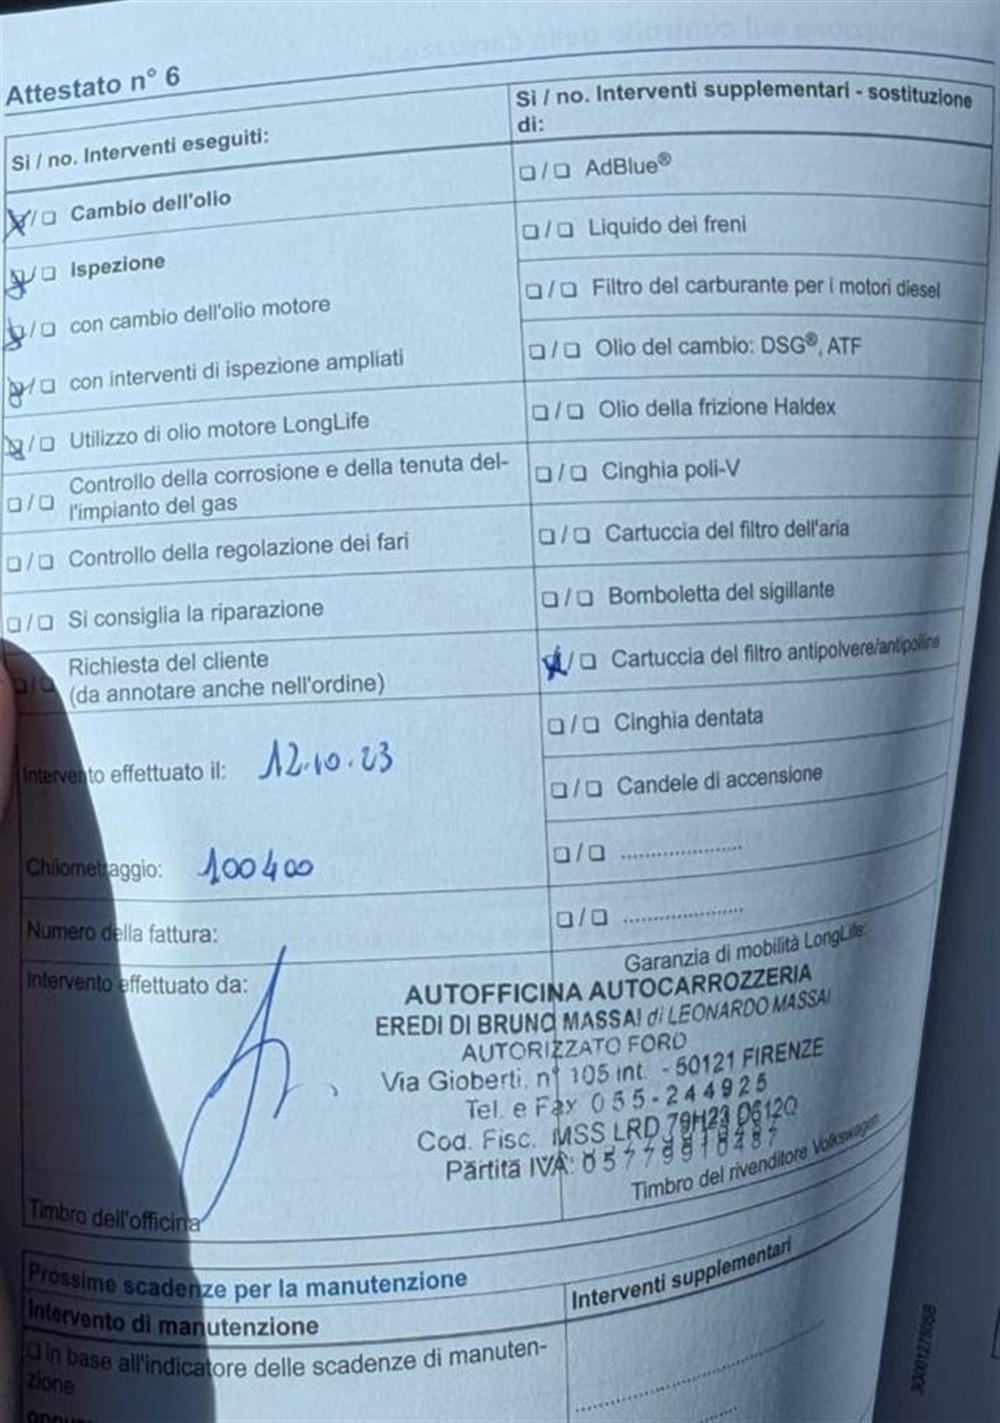 Attestato n° 6
Sì / no. Interventi eseguiti:
☒/❑ Cambio dell'olio
☒/❑ Ispezione
☒/❑ con cambio dell'olio motore
☒/❑ con interventi di ispezione ampliati
☒/❑ Utilizzo di olio motore LongLife
❑/❑ Controllo della corrosione e della tenuta del-
l'impianto del gas
❑/❑ Controllo della regolazione dei fari
❑/❑ Si consiglia la riparazione
❑/❑ Richiesta del cliente
(da annotare anche nell'ordine)
Intervento effettuato il: 12.10.23
Chilometraggio: 100400
Numero della fattura:
Intervento effettuato da:
Timbro dell'officina
Sì / no. Interventi supplementari - sostituzione
di:
❑/❑ AdBlue®
❑/❑ Liquido dei freni
❑/❑ Filtro del carburante per i motori diesel
❑/❑ Olio del cambio: DSG®, ATF
❑/❑ Olio della frizione Haldex
❑/❑ Cinghia poli-V
❑/❑ Cartuccia del filtro dell'aria
❑/❑ Bomboletta del sigillante
☒/❑ Cartuccia del filtro antipolvere/antipolline
❑/❑ Cinghia dentata
❑/❑ Candele di accensione
❑/❑ .....................
❑/❑ .....................
Garanzia di mobilità LongLife:
AUTOFFICINA AUTOCARROZZERIA
EREDI DI BRUNO MASSAI di LEONARDO MASSAI
AUTORIZZATO FORD
Via Gioberti, n° 105 int. - 50121 FIRENZE
Tel. e Fax 055-244925
Cod. Fisc. MSS LRD 79H23 D612Q
Partita IVA: 05779910487
Timbro del rivenditore Volkswagen
Prossime scadenze per la manutenzione
Intervento di manutenzione
❑ in base all'indicatore delle scadenze di manuten-
zione
oppure
Interventi supplementari
3G0012750SB